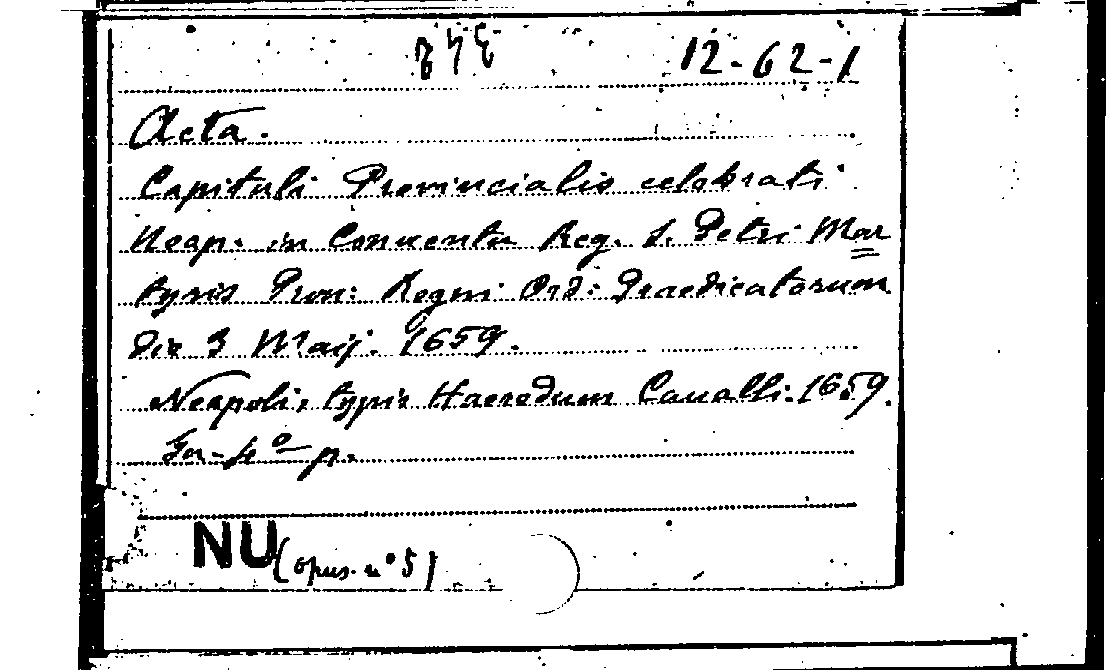 12-62-1
Acta.
Capituli Provincialis celebrati
Neap. in Conuentu Reg. S. Petri Mar
tyris Prou: Regni Ord: Praedicatorum
die 3 Maij. 1659.
Neapoli, typis Haeredum Caualli. 1659.
In-4º p.
NU (opus. nº 5)